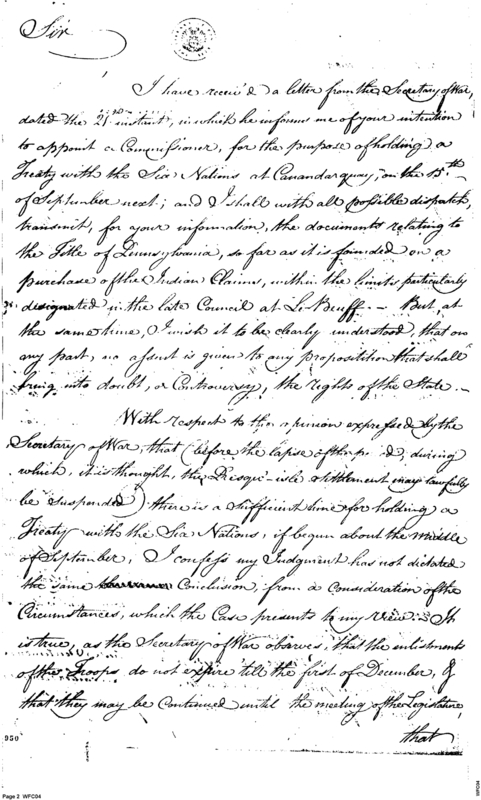 Sir
I have receiv'd a letter from the Secretary of War,
dated the 21st instant, in which he informs me of your intention
to appoint a Commissioner, for the purpose of holding a
Treaty with the Six Nations at Canandarquay, on the 15th
of September next; and I shall with all possible dispatch,
transmit, for your information, the documents relating to
the Title of Pennsylvania, so far as it is founded on a
purchase of the Indian Claims, within the limits particularly
designated in the late Council at Le Beuff. — But, at
the same time, I wish it to be clearly understood, that on
my part, no assent is given to any proposition that shall
bring into doubt, or Controversy, the rights of the State. —
With respect to the opinion expressed by the
Secretary of War, that (before the lapse of the, during
which, it is thought, the Presqu'-isle settlement may lawfully
be suspended) there is a sufficient time for holding a
Treaty with the Six Nations, if begun about the middle
of September, I confess my Judgment has not dictated
the same Conclusion, from a consideration of the
Circumstances, which the Case presents to my view. It
is true, as the Secretary of War observes, that the enlistments
of the Troops do not expire till the first of December, &
that they may be Continued until the meeting of the Legislature,
that
950
Page 2 WFC04
WFC04